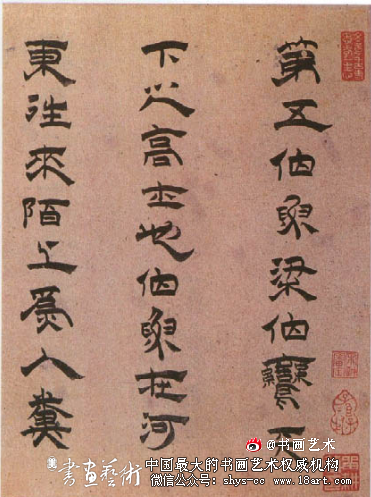 第五伯魚梁伯鸞天
下之高士也伯魚在河
東往來陌上爲人糞
@书画艺术
書畫藝術
中国最大的书画艺术权威机构
微信公众号: shys-cc 官网: www.18art.com